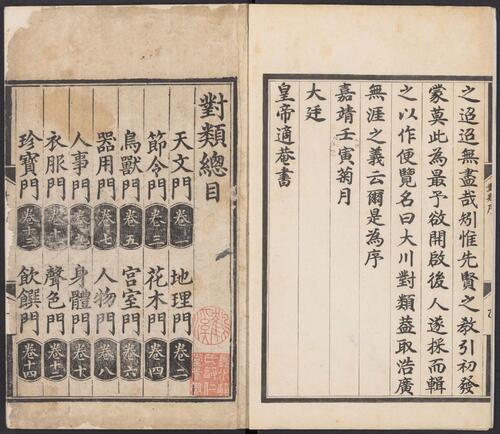 之迢迢無盡哉矧惟先賢之教引初發
蒙莫此為最予欲開啟後人遂採而輯
之以作便覽名曰大川對類葢取浩廣
無涯之義云爾是為序
嘉靖壬寅菊月
大廷
皇帝適菴書
對類總目
天文門 卷一 地理門 卷二
節令門 卷三 花木門 卷四
鳥獸門 卷五 宮室門 卷六
器用門 卷七 人物門 卷八
人事門 卷九 身體門 卷十
衣服門 卷十一 聲色門 卷十二
珍寶門 卷十三 飲饌門 卷十四